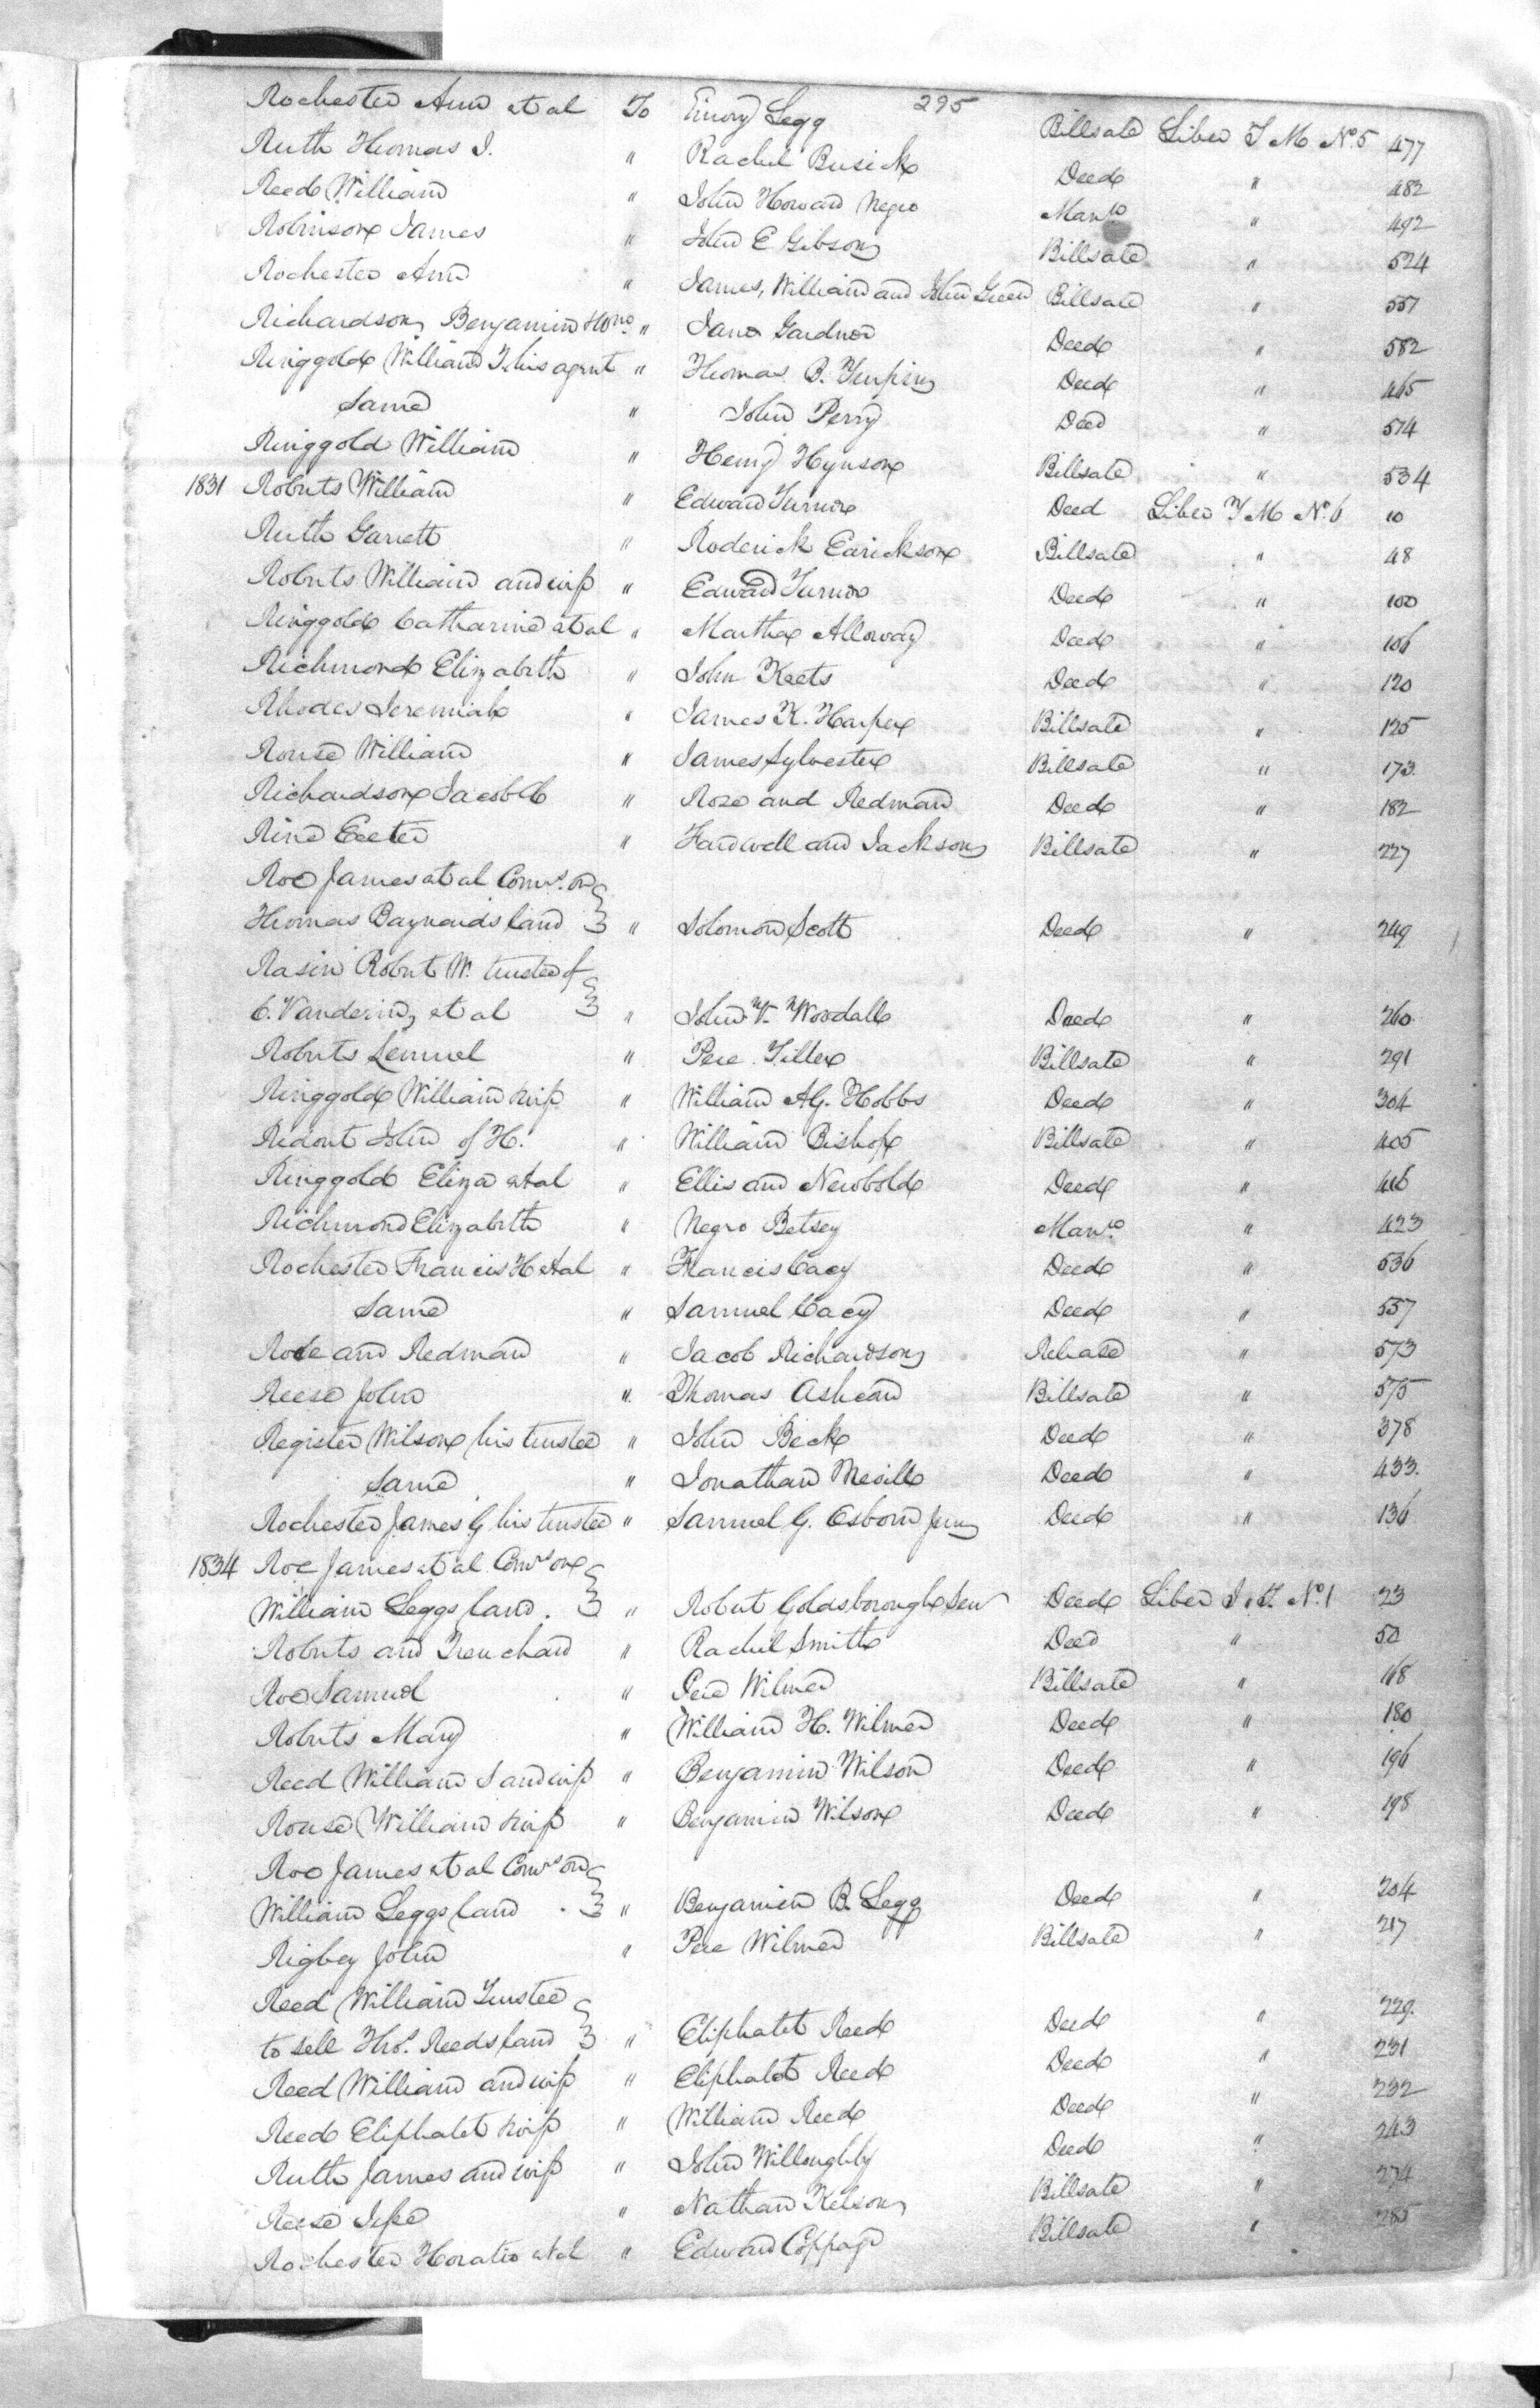 295
Rochester Ann et al To Emory Legg Billsale Liber T M No. 5 477
Ruth Thomas I. " Rachel Busick Deed " 482
Reed William " John Howard Negro Manso " 492
Robinson James " John E Gibson Billsale " 524
Rochester Ann " James, William and John Green Billsale " 557
Richardson Benjamin " Jane Gardner Deed " 582
Ringgold William T his agent " Thomas B. Turpin Deed " 445
Same " John Perry Deed " 514
Ringgold William " Henry Hynson Billsale " 534
1831 Roberts William " Edward Turner Deed Liber T M No. 6 10
Ruth Garrett " Roderick Earickson Billsale " 48
Roberts William and wife " Edward Turner Deed " 100
Ringgold Catharine et al " Martha Alloway Deed " 106
Richmond Elizabeth " John Keets Deed " 120
Rhodes Jeremiah " James K. Harper Billsale " 125
Rouse William " James Sylvester Billsale " 173
Richardson Jacob C " Roze and Redman Deed " 182
Rine Exeter " Fardwell and Jackson Billsale " 227
Roe James et al Comrs. on
Thomas Baynards land " Solomon Scott Deed " 249
Rasin Robert W. trustee of
C. Vandering et al " John V. Woodall Deed " 260
Roberts Lemuel " Pere Tiller Billsale " 291
Ringgold William & wife " William A. Hobbs Deed " 304
Ridout John of H. " William Bishop Billsale " 405
Ringgold Eliza et al " Ellis and Newbold Deed " 416
Richmond Elizabeth " Negro Betsey Manso. " 423
Rochester Francis H et al " Francis Cacy Deed " 536
Same " Samuel Cacy Deed " 557
Roze and Redman " Jacob Richardson Release " 573
Reese John " Thomas Ashcom Billsale " 575
Register Wilson his trustee " John Beck Deed " 378
Same " Jonathan Mevill Deed " 433
Rochester James G his trustee " Samuel G. Osborn Jun Deed " 136
1834 Roe James et al Comrs on
William Leggs land. " Robert Goldsborough Sen Deed Liber J. T. No. 1 23
Roberts and Trenchard " Rachel Smith Deed " 50
Roe Samuel " Pere Wilmer Billsale " 118
Roberts Mary " William H. Wilmer Deed " 180
Reed William S and wife " Benjamin Wilson Deed " 196
Rouse William & wife " Benjamin Wilson Deed " 198
Roe James et al Comrs on
William Leggs land " Benjamin B. Legg Deed " 204
Rigbey John " Pere Wilmer Billsale " 217
Reed William Trustee
to sell Thos. Reeds land " Eliphalet Reed Deed " 229
Reed William and wife " Eliphalet Reed Deed " 231
Reed Eliphalet & wife " William Reed Deed " 232
Ruth James and wife " John Willoughby Deed " 243
Reese " Nathan Kelson Billsale " 274
Rochester Horatio et al " Edward Coppage Billsale " 285